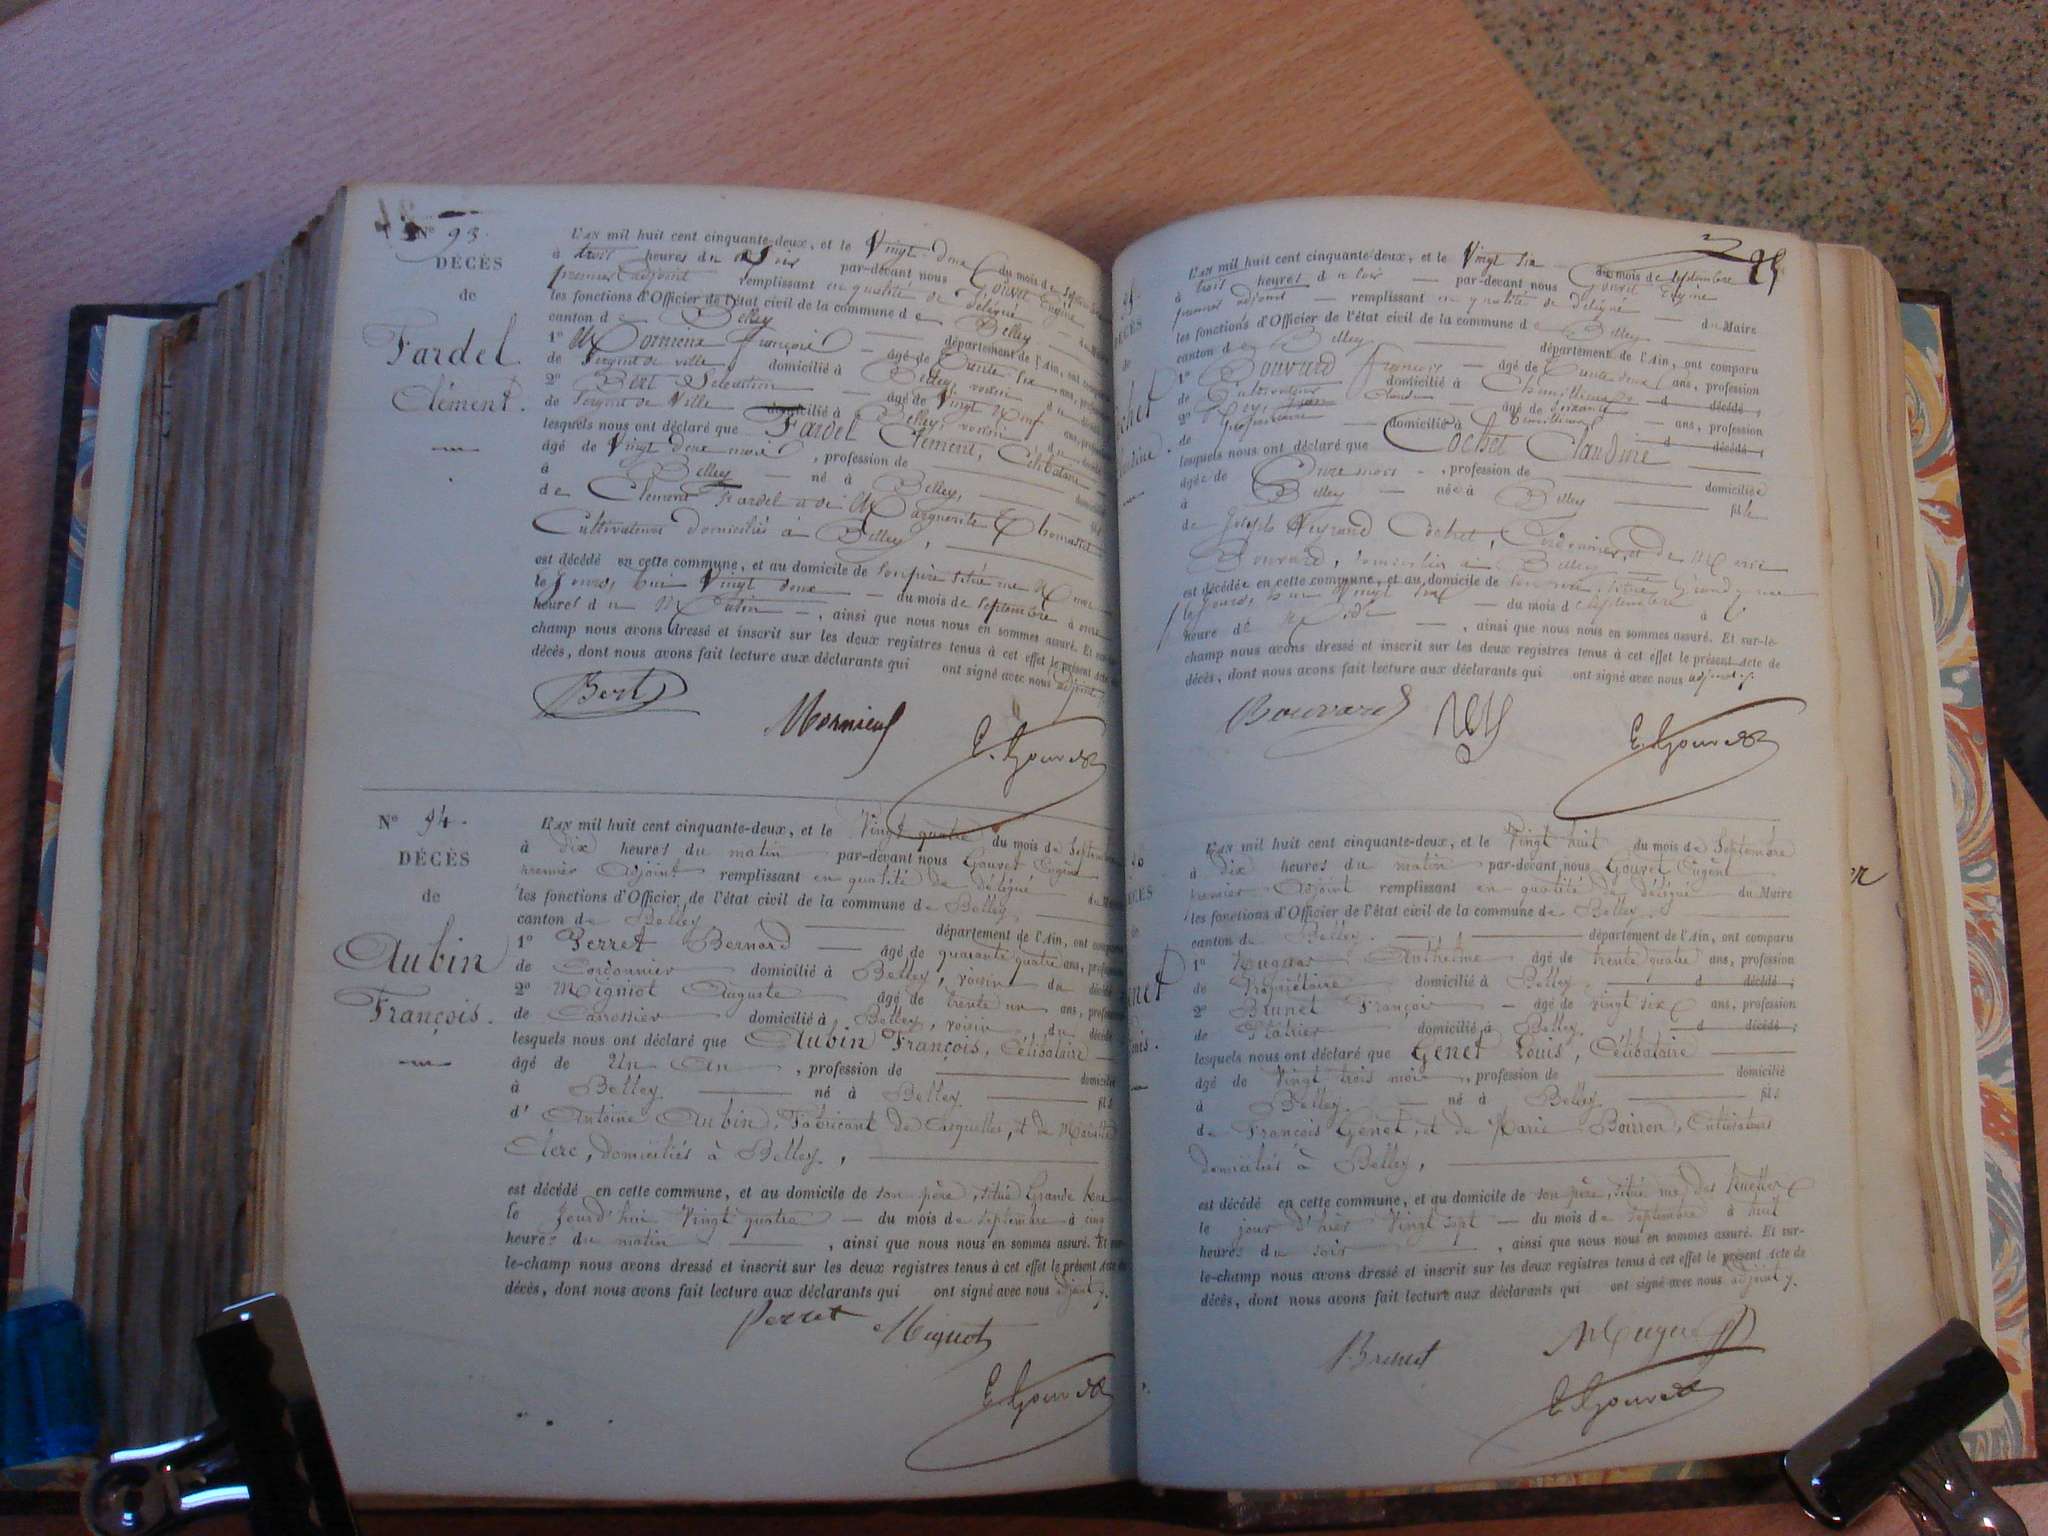 Nº 93.
DÉCÈS
de
Fardel
Clément.
L'AN mil huit cent cinquante-deux, et le Vingt deux du mois de
à trois heures du soir par-devant nous Gouvet Eugène
premier adjoint remplissant en qualité de Délégué
les fonctions d'Officier de l'état civil de la commune de Belley
canton de Belley département de l'Ain, ont
1º Mornieux François âgé de trente six ans,
de Sergent de ville domicilié à Belley, voisin du
2º Bert Sébastien âgé de Vingt Neuf ans,
de Sergent de Ville domicilié à Belley, voisin du
lesquels nous ont déclaré que Fardel Clément, Célibataire
âgé de Vingt deux mois, profession de
à Belley né à Belley,
de Clément Fardel et de Marguerite
Cultivateurs domiciliés à Belley,
est décédé en cette commune, et au domicile de son père situé rue
le Jourd'hui Vingt deux du mois de septembre à onze
heures du Matin, ainsi que nous nous en sommes assuré. Et
champ nous avons dressé et inscrit sur les deux registres tenus à cet effet le présent acte
décès, dont nous avons fait lecture aux déclarants qui ont signé avec nous adjoint
Bert
Mornieux
E. Gouvet
Nº 94.
DÉCÈS
de
Aubin
François.
L'AN mil huit cent cinquante-deux, et le Vingt quatre du mois de
à dix heures du matin par-devant nous Gouvet Eugène
premier Adjoint remplissant en qualité de délégué
les fonctions d'Officier de l'état civil de la commune de Belley
canton de Belley département de l'Ain, ont comparu
1º Perret Bernard âgé de quarante quatre ans,
de Cordonnier domicilié à Belley, voisin du
2º Migniot Auguste âgé de trente un ans,
de Carrossier domicilié à Belley, voisin du
lesquels nous ont déclaré que Aubin François, Célibataire
âgé de Un An, profession de domicilié
à Belley né à Belley fils
d' Antoine Aubin, Fabricant de Casquettes, et de
Clerc, domiciliés à Belley,
est décédé en cette commune, et au domicile de son père, situé Grande Rue
le Jourd'hui Vingt quatre du mois de septembre à cinq
heures du matin, ainsi que nous nous en sommes assuré. Et sur-
le-champ nous avons dressé et inscrit sur les deux registres tenus à cet effet le présent acte de
décès, dont nous avons fait lecture aux déclarants qui ont signé avec nous adjoint
Perret Mignot
E. Gouvet
L'AN mil huit cent cinquante-deux, et le Vingt six du mois de septembre
à trois heures du soir par-devant nous Gouvet Eugène
premier adjoint remplissant en qualité de délégué du Maire
les fonctions d'Officier de l'état civil de la commune de Belley
canton de Belley département de l'Ain, ont comparu
1º Bouvard François âgé de trente deux ans, profession
de Cultivateur domicilié à d décédé,
2º Claude âgé de soixante ans, profession
de propriétaire domicilié à d décédé,
lesquels nous ont déclaré que Cochet Claudine
âgée de Onze mois, profession de domiciliée
à Belley née à Belley fille
de Joseph Cochet, Cordonnier, et de Marie
Bouvard, domiciliés à Belley
est décédée en cette commune, et au domicile de son père, située Grand rue
le jourd'hui Vingt six du mois de septembre à
heure de Midi, ainsi que nous nous en sommes assuré. Et sur-le-
champ nous avons dressé et inscrit sur les deux registres tenus à cet effet le présent acte de
décès, dont nous avons fait lecture aux déclarants qui ont signé avec nous adjoint
Bouvard
E. Gouvet
L'AN mil huit cent cinquante-deux, et le Vingt huit du mois de Septembre
à dix heures du matin par-devant nous Gouvet Eugène
premier Adjoint remplissant en qualité de délégué du Maire
les fonctions d'Officier de l'état civil de la commune de Belley.
canton de Belley. département de l'Ain, ont comparu
1º Anthelme âgé de trente quatre ans, profession
de Propriétaire domicilié à Belley, d décédé,
2º Brunet François âgé de vingt six ans, profession
de Plâtrier domicilié à Belley, d décédé,
lesquels nous ont déclaré que Genet Louis, Célibataire
âgé de Vingt trois mois, profession de domicilié
à Belley. né à Belley. fils
de François Genet, et de Marie Boirron, Cultivateurs
domiciliés à Belley,
est décédé en cette commune, et au domicile de son père, situé rue des
le jour d'hier Vingt sept du mois de septembre à huit
heures du soir, ainsi que nous nous en sommes assuré. Et sur-
le-champ nous avons dressé et inscrit sur les deux registres tenus à cet effet le présent acte de
décès, dont nous avons fait lecture aux déclarants qui ont signé avec nous adjoint
Brunet
E. Gouvet